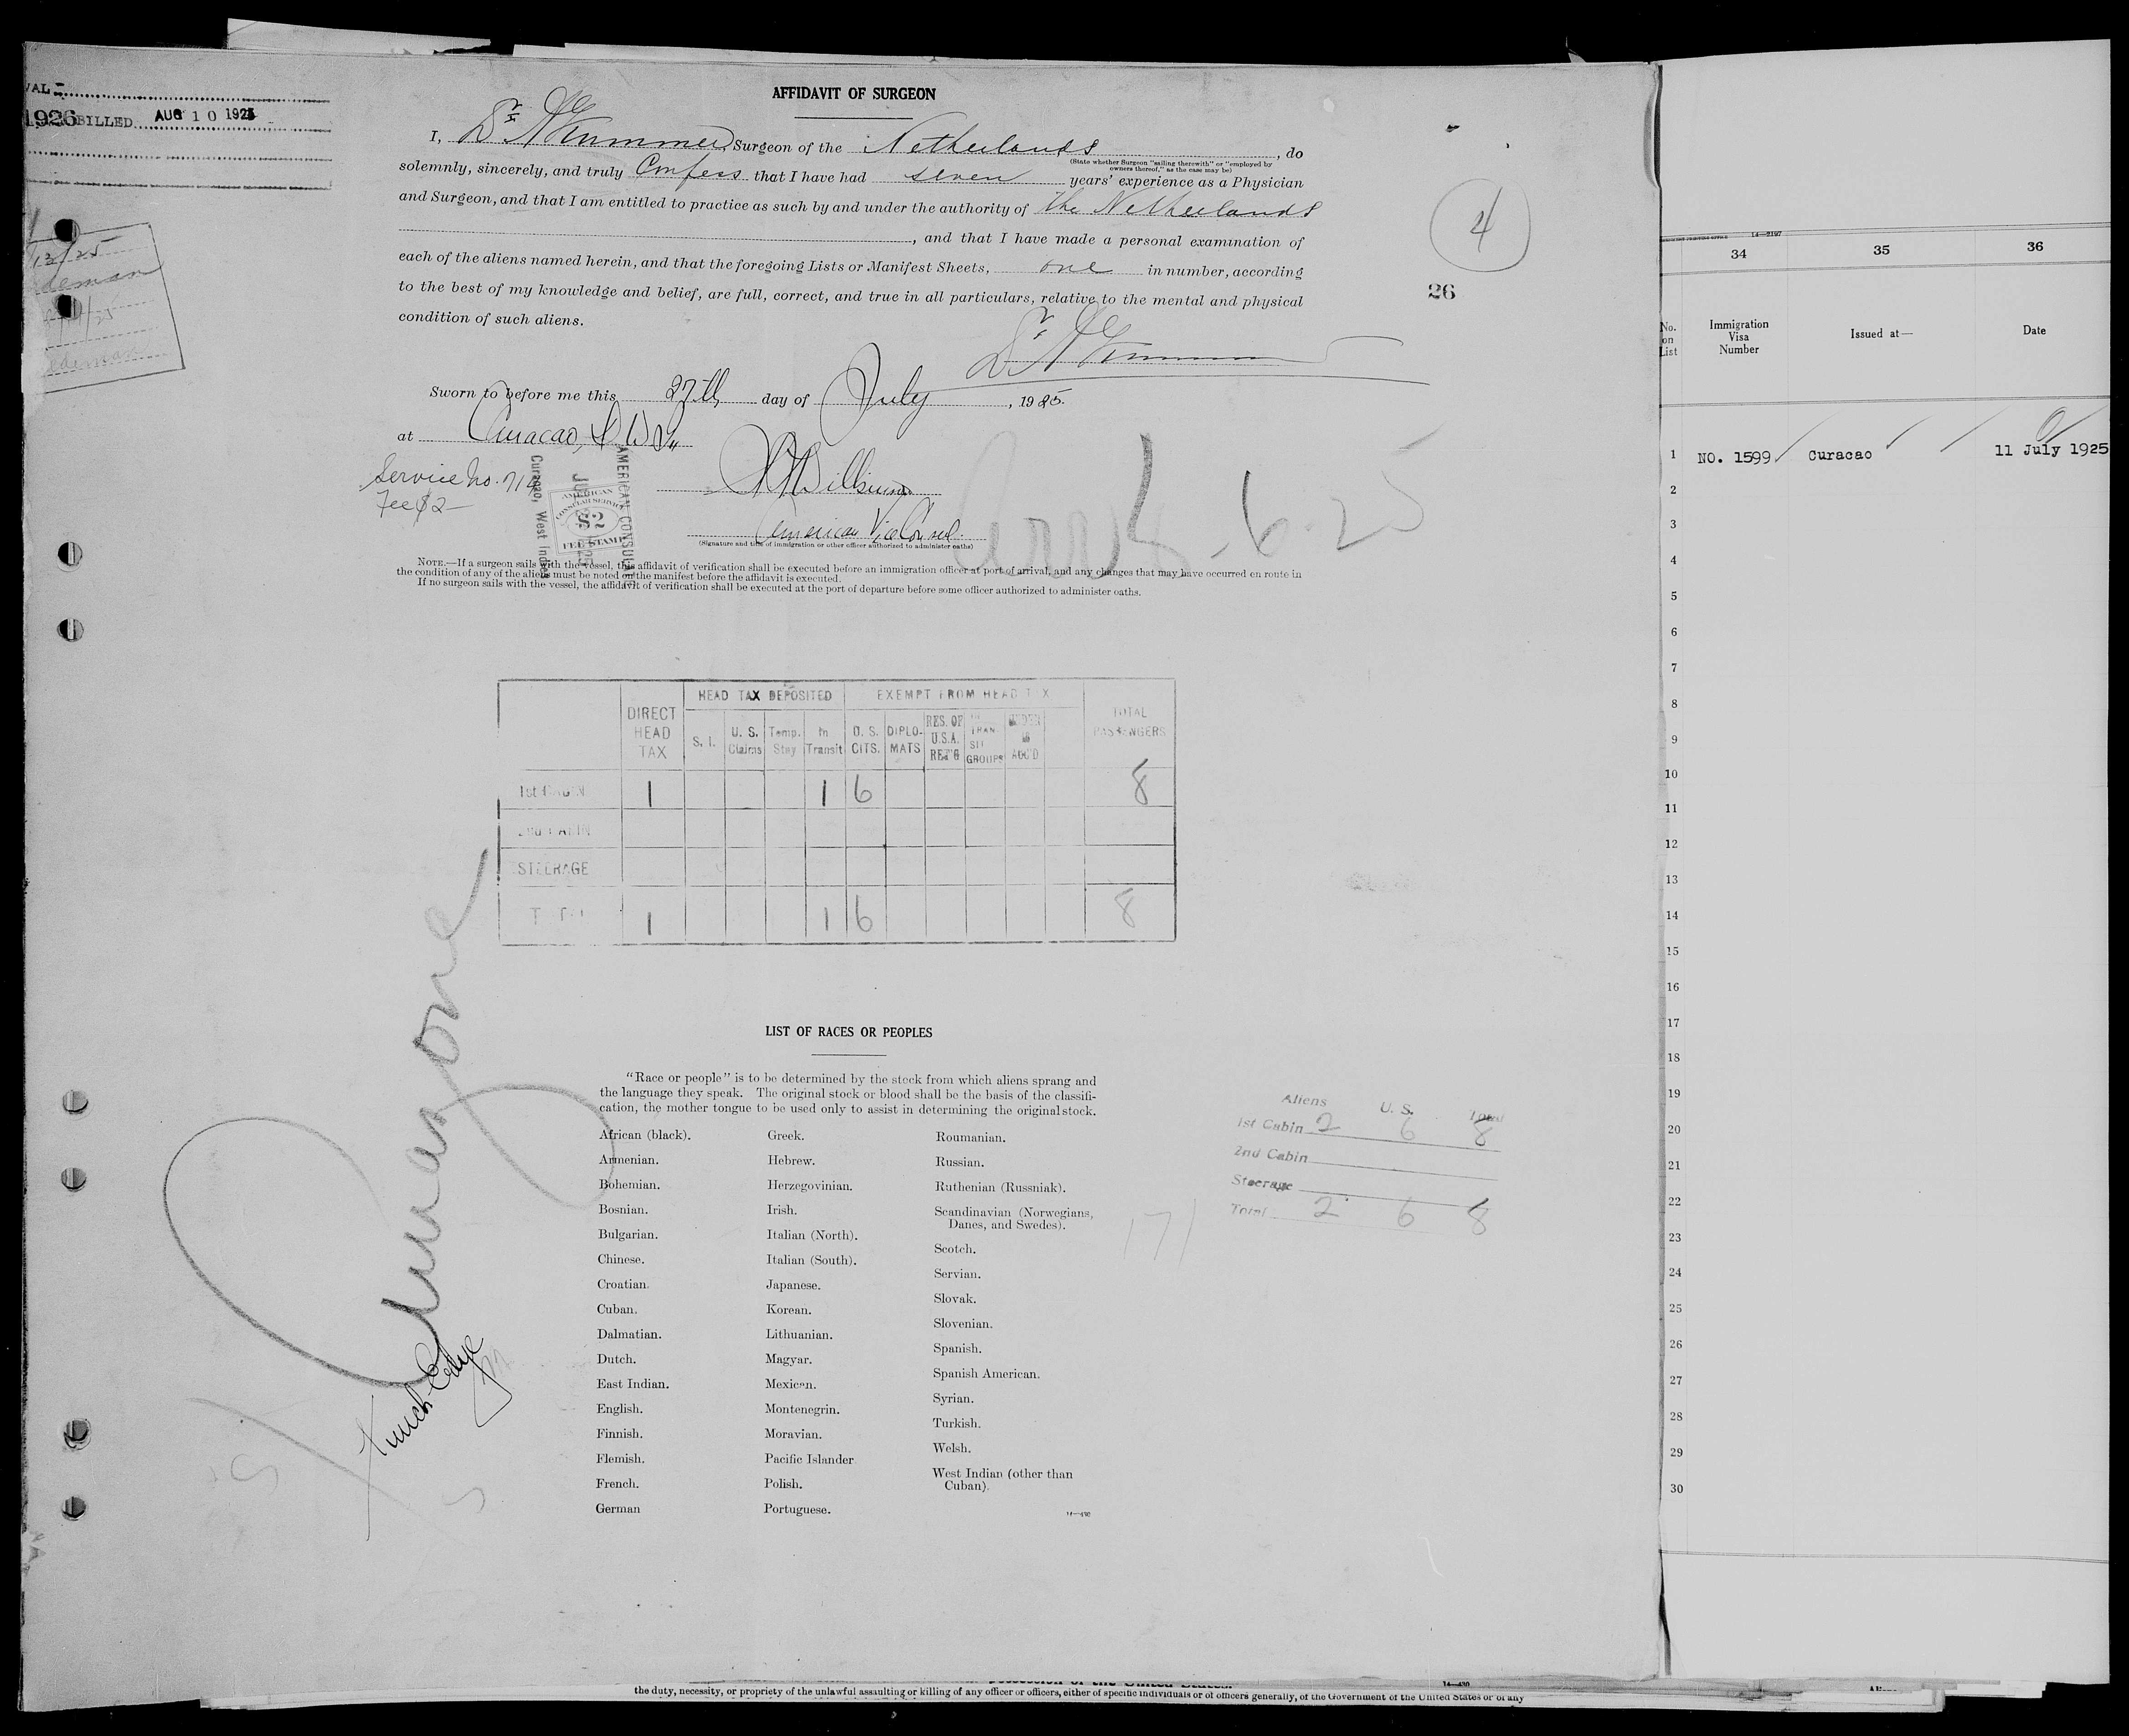 1926 BILLED AUG 10 1925
AFFIDAVIT OF SURGEON
I, Surgeon of the Netherlands, do
(State whether Surgeon "sailing therewith" or "employed by
owners thereof," as the case may be)
solemnly, sincerely, and truly Confess that I have had seven years' experience as a Physician
and Surgeon, and that I am entitled to practice as such by and under the authority of the Netherlands
, and that I have made a personal examination of
each of the aliens named herein, and that the foregoing Lists or Manifest Sheets, one in number, according
to the best of my knowledge and belief, are full, correct, and true in all particulars, relative to the mental and physical
condition of such aliens.
4
26
Sworn to before me this 27th day of July, 1925.
at Curacao, D. W. I.,
Service No. 71
Fee $2—
AMERICAN CONSULAR SERVICE
$2
FEE STAMP
AMERICAN CONSUL
Curaçao, West Indies
American Vice Consul.
(Signature and title of immigration or other officer authorized to administer oaths)
6-25
NOTE.—If a surgeon sails with the vessel, this affidavit of verification shall be executed before an immigration officer at port of arrival, and any changes that may have occurred en route in
the condition of any of the aliens must be noted on the manifest before the affidavit is executed.
If no surgeon sails with the vessel, the affidavit of verification shall be executed at the port of departure before some officer authorized to administer oaths.
HEAD TAX DEPOSITED EXEMPT FROM HEAD TAX
DIRECT HEAD TAX S. I. U. S. Claims Temp. Stay In Transit U. S. CITS. DIPLOMATS RES. OF U.S.A. RET'G IN TRANSIT GROUPS UNDER 16 ACC'D TOTAL PASSENGERS
1st CABIN 1 1 6 8
2nd CABIN
STEERAGE
TOTAL 1 1 6 8
LIST OF RACES OR PEOPLES
"Race or people" is to be determined by the stock from which aliens sprang and
the language they speak. The original stock or blood shall be the basis of the classifi-
cation, the mother tongue to be used only to assist in determining the original stock.
African (black).
Armenian.
Bohemian.
Bosnian.
Bulgarian.
Chinese.
Croatian.
Cuban.
Dalmatian.
Dutch.
East Indian.
English.
Finnish.
Flemish.
French.
German
Greek.
Hebrew.
Herzegovinian.
Irish.
Italian (North).
Italian (South).
Japanese.
Korean.
Lithuanian.
Magyar.
Mexican.
Montenegrin.
Moravian.
Pacific Islander
Polish.
Portuguese.
Roumanian.
Russian.
Ruthenian (Russniak).
Scandinavian (Norwegians,
Danes, and Swedes).
Scotch.
Servian.
Slovak.
Slovenian.
Spanish.
Spanish American.
Syrian.
Turkish.
Welsh.
West Indian (other than
Cuban).
14—430
Aliens U. S. Total
1st Cabin 2 6 8
2nd Cabin
Steerage
Total 2 6 8
171
14—2197
34 35 36
No. on List
Immigration Visa Number
Issued at—
Date
1 NO. 1599 Curacao 11 July 1925
2
3
4
5
6
7
8
9
10
11
12
13
14
15
16
17
18
19
20
21
22
23
24
25
26
27
28
29
30
14—430
the duty, necessity, or propriety of the unlawful assaulting or killing of any officer or officers, either of specific individuals or of officers generally, of the Government of the United States or of any